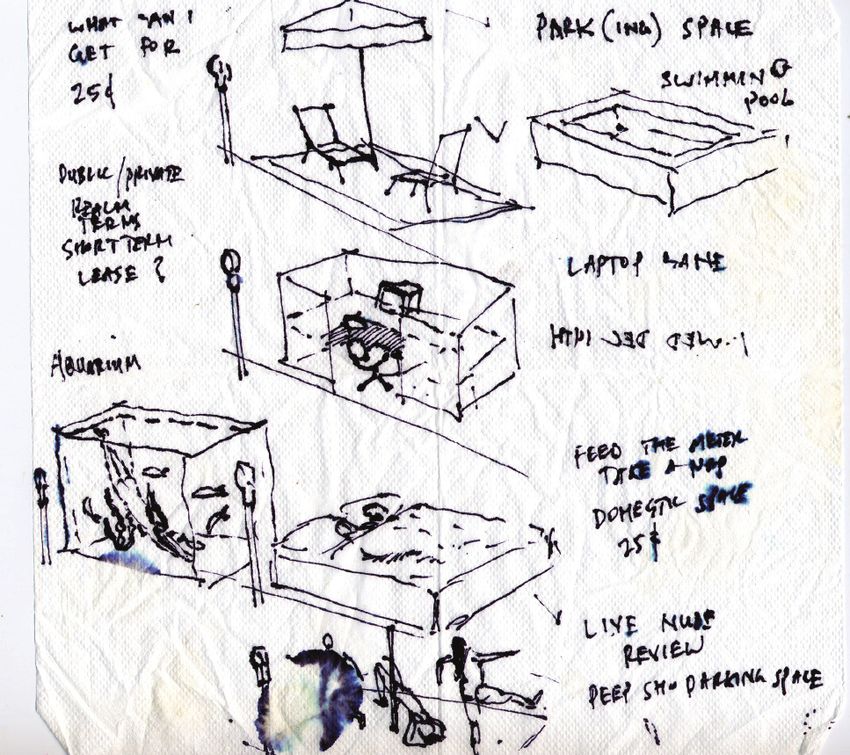 WHAT CAN I
GET FOR
25¢
PARK(ING) SPACE
SWIMMING
POOL
PUBLIC/PRIVATE
REALM
TERMS
SHORT TERM
LEASE?
LAPTOP LANE
AQUARIUM
FEED THE METER
TAKE A NAP
DOMESTIC SPACE
25¢
LIVE NUDE
REVIEW
PEEP SHO PARKING SPACE